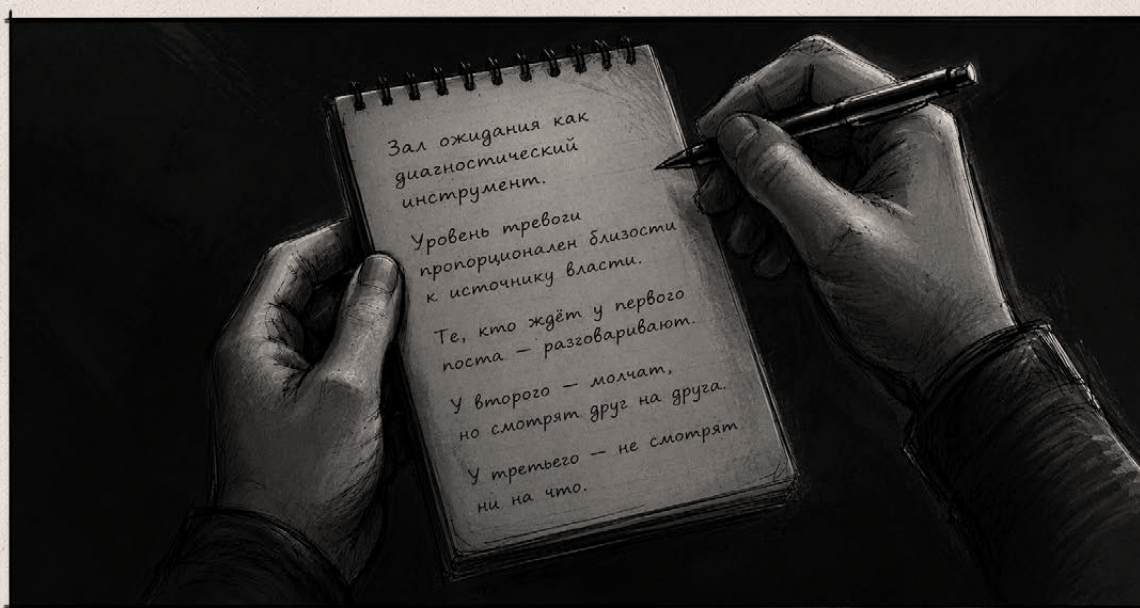 Зал ожидания как
диагностический
инструмент.
Уровень тревоги
пропорционален близости
к источнику власти.
Те, кто ждёт у первого
поста — разговаривают.
У второго — молчат,
но смотрят друг на друга.
У третьего — не смотрят
ни на что.